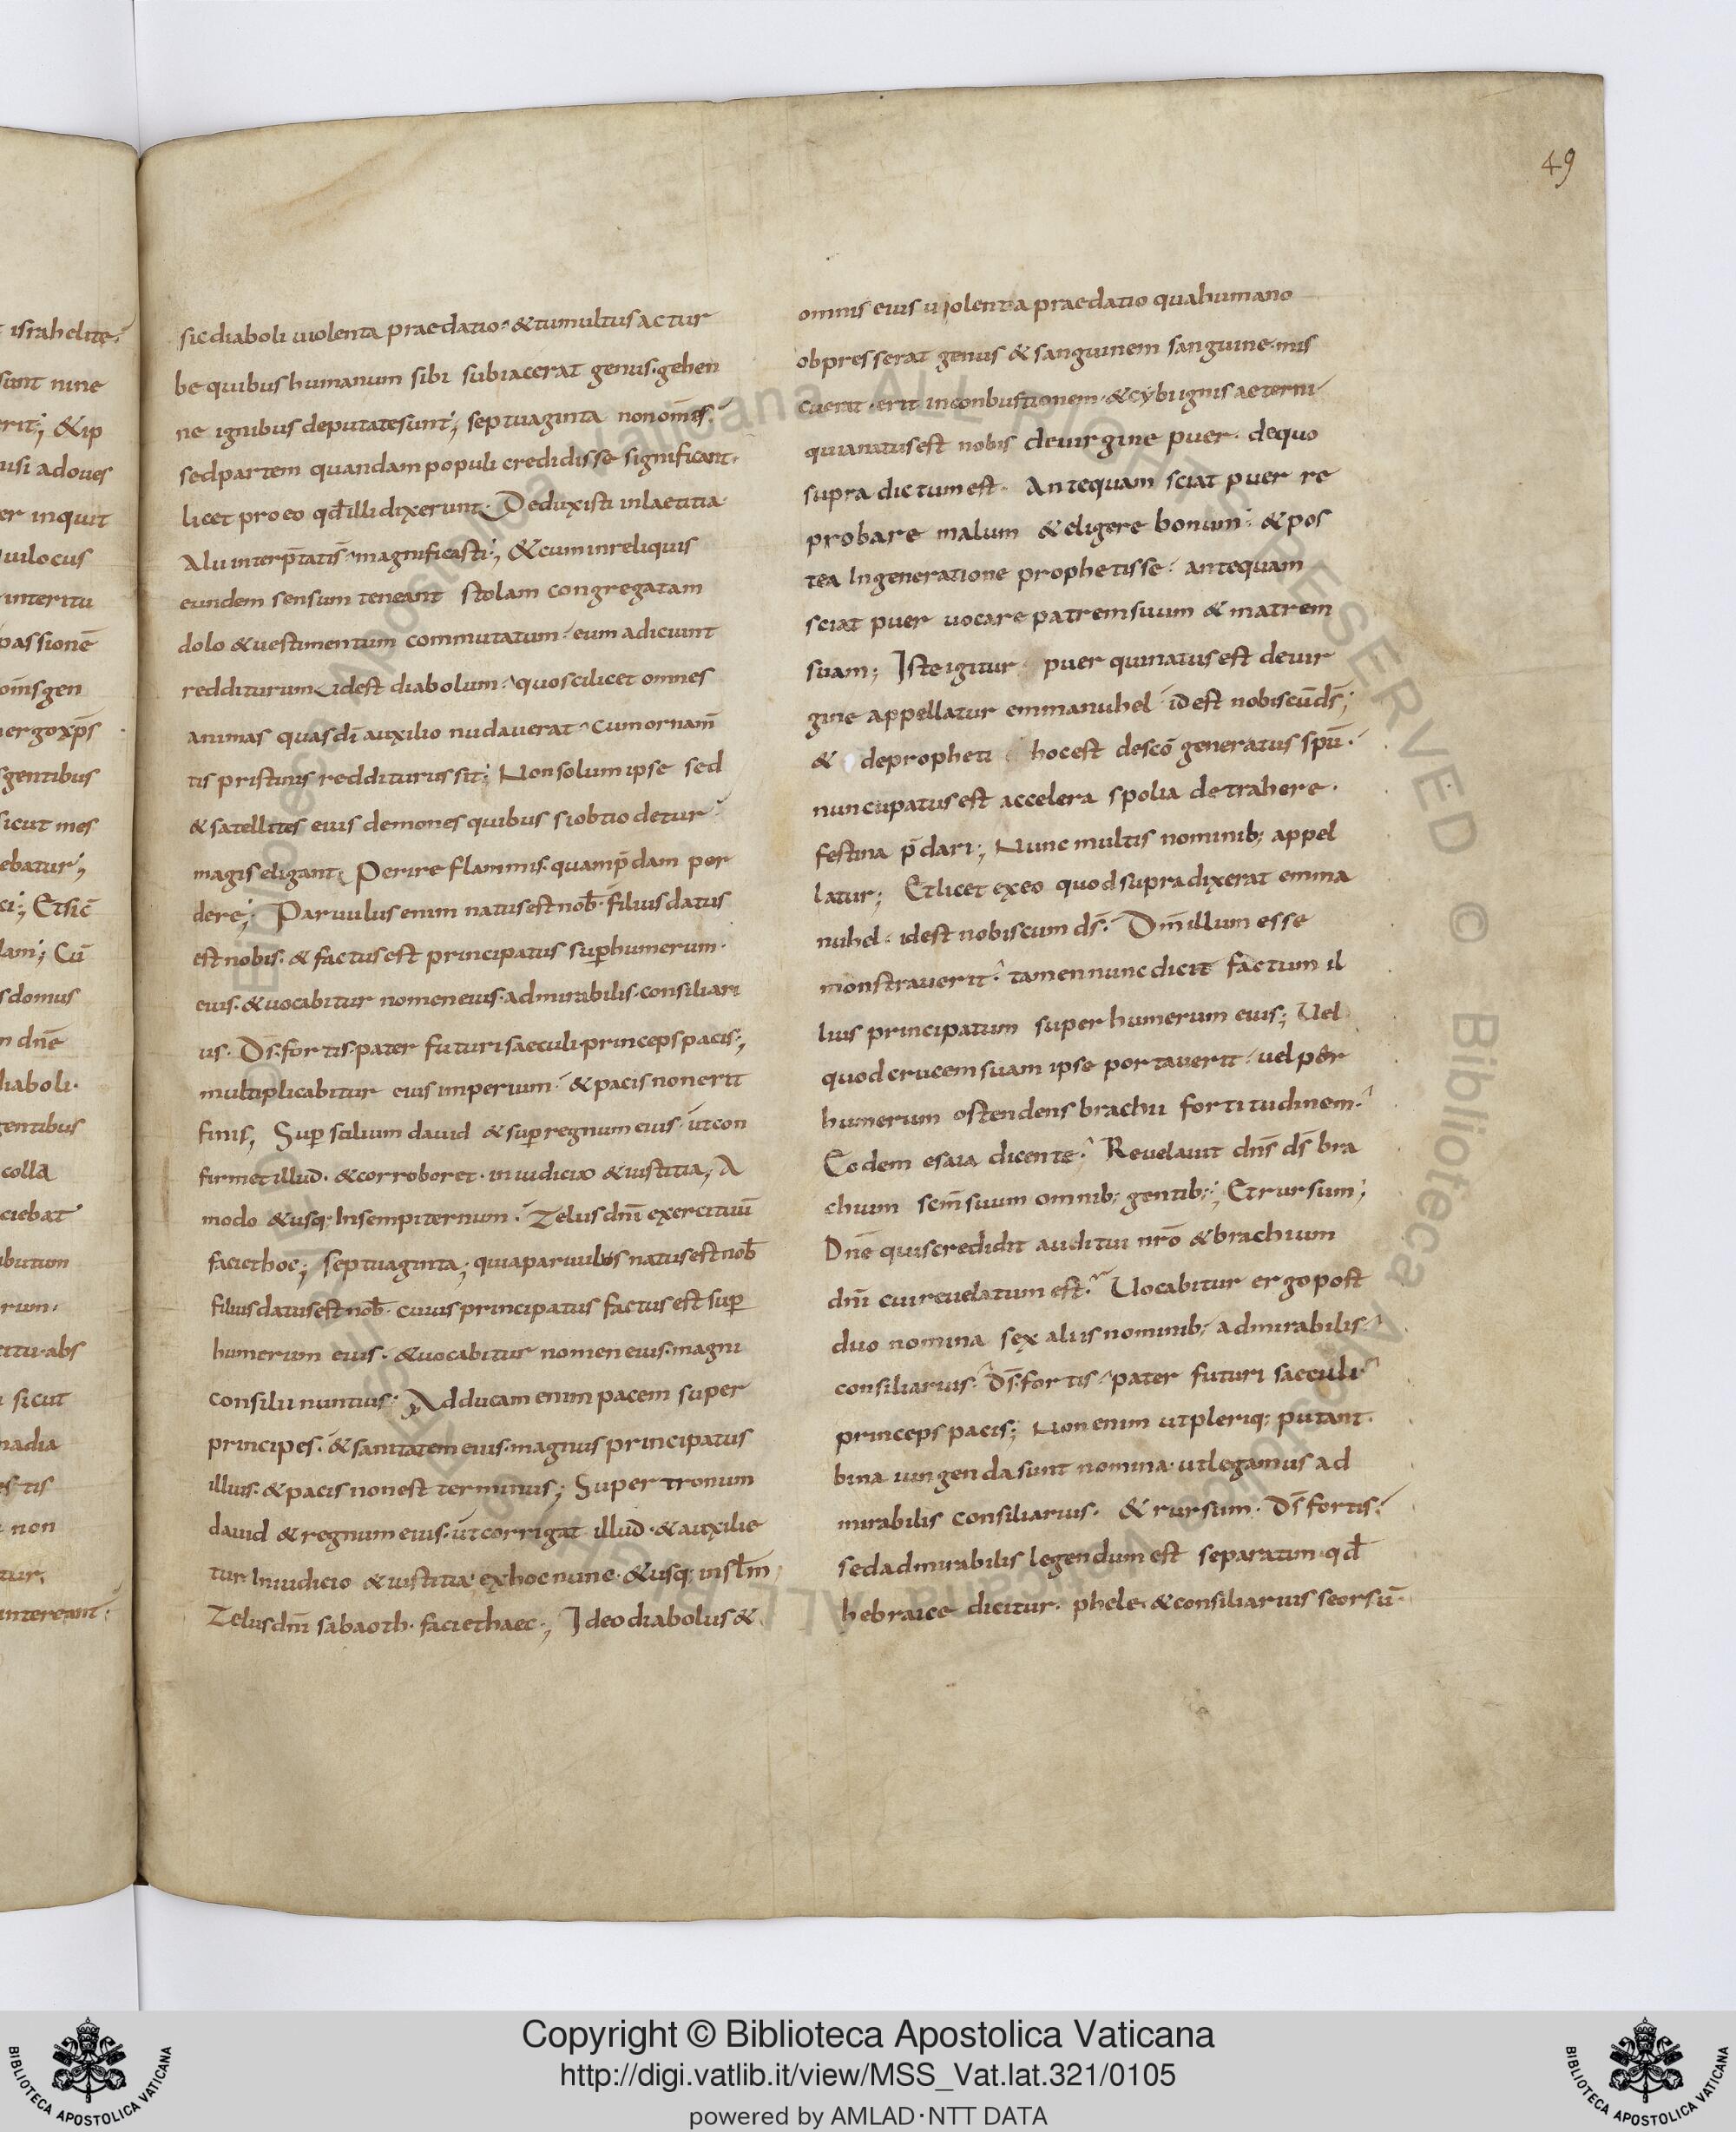 49
israhelite
sunt nine
erit; &ip
usi adoues
er inquit
uilocus
interitu
passionē
oīnsgen
ergoxp̄s
gentibus
sicut mes
ebatur;
ci; Etsic̄
lam; Cū
sdomus
n dnē
diaboli.
gentibus
colla
ciebat
ibutum
rum.
abs
sicut
nadia
es tis
non
tur.
intereant:
sicdiaboli uiolenta praedatio &tumultusactur
bequibushumanum sibi subiacerat genus.gehen
ne ignibusdeputatesunt; septuaginta nonoms̄.
sedpartem quandampopuli credidisse significant.
licet proeo qd̄illidixerunt. Deduxisti inlaetitia
Alii interp̄tatis̄ magnificasti; &cuminreliquis
eundem sensum teneant stolam congregatam
dolo &uestimentum commutatum. eum adiciunt
redditurum idest diabolum. quoscilicet omnes
animas quasdī auxilio nudauerat. cumornam̄
tis pristinis redditurussit; Nonsolumipse sed
&satellites eius demones quibus siobtio detur
magis eligant. Perire flammis.quamp̄dam per
dere; Paruulusenim natusestnob̄. filiusdatus
estnobis. & factusest principatus sup̄humerum.
eius. &uocabitur nomeneius.admirabilis.consiliari
us. Ds̄.fortis.pater futurisaeculi.princepspacis.;
multiplicabitur eius imperium. & pacisnonerit
finis; Sup̄ solium dauid &sup̄regnumeius. utcon
firmetillud. &corroboret. iniudicio &iustitia; A
modo &usq; Insempiternum. Zelusdnī exercituū
faciethoc; septuaginta; quiaparuulos natusestnob̄
filiusdatusestnob̄. cuiusprincipatus factusest sup̄
humerum eius. &uocabitur nomeneius.magni
consilii nuntius. Adducamenim pacem super
principes. &sanitatemeius.magnusprincipatus
illius. &pacisnonest terminus; Super tronum
dauid &regnumeius. utcorrigat illud. &auxilie
tur Iniudicio &iustitia exhocnunc. &usq; insl̄m
Zelusdnī sabaoth. faciethaec; Ideodiabolus&
omnis eius uiolentia praedatio quahumano
obpresserat genus &sanguinem sanguine.mis
cuerat.erit inconbustionem.&cybiignisaeterni
quianatusest nobis deuirgine puer. dequo
supra dictumest. Antequam sciat puer re
probare malum &eligere bonum. &pos
tea Ingeneratione prophetisse. antequam
sciat puer uocare patremsuum &matrem
suam; Isteigitur puer quinatusest deuir
gine appellatur emmanuhel idest nobiscūds̄;
& depropheti hocest descō generatus spū.
nuncupatusest accelera spolia detrahere.
festina p̄dari; Nunc multis nominib; appel
latur; Etlicet exeo quodsupradixerat emma
nuhel. idest nobiscum ds̄. Dn̄illum esse
monstrauerit. tamennuncdicit factum il
lius principatum super humerum eius; Uel
quodcrucemsuam ipse portauerit. uelper
humerum ostendens brachii fortitudinem.
Eodem esaia dicente. Reuelauit dns̄ ds̄ bra
chium scm̄suum omnib; gentib;; Etrursum;
Dnē quiscredidit auditui nrō &brachium
dnī cuireuelatum est. Uocabitur ergopost
duo nomina sex aliisnominib; admirabilis.
consiliarius. ds̄.fortis. pater futuri saeculi
princeps pacis; Nonenim utpleriq; putant.
bina iungendasunt nomina. utlegamus ad
mirabilis consiliarius. & rursum. ds̄ fortis.
sedadmirabilis legendumest separatim.qd̄
hebraice dicitur. phele. &consiliarius seorsū.
Copyright © Biblioteca Apostolica Vaticana
http://digi.vatlib.it/view/MSS_Vat.lat.321/0105
powered by AMLAD·NTT DATA
BIBLIOTECA APOSTOLICA VATICANA
BIBLIOTECA APOSTOLICA VATICANA